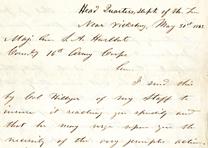 Head Quarters, Dept. of the Ten
Near Vicksburg, May 31st 1863
Maj. Gen. S. A. Hurlbut
Comdg 16th Army Corps
Gen.
I send this
by Col. Hillyer of my Staff to
insure it reaching you speedily and
that he may urge upon you the
necessity of the very prompt action